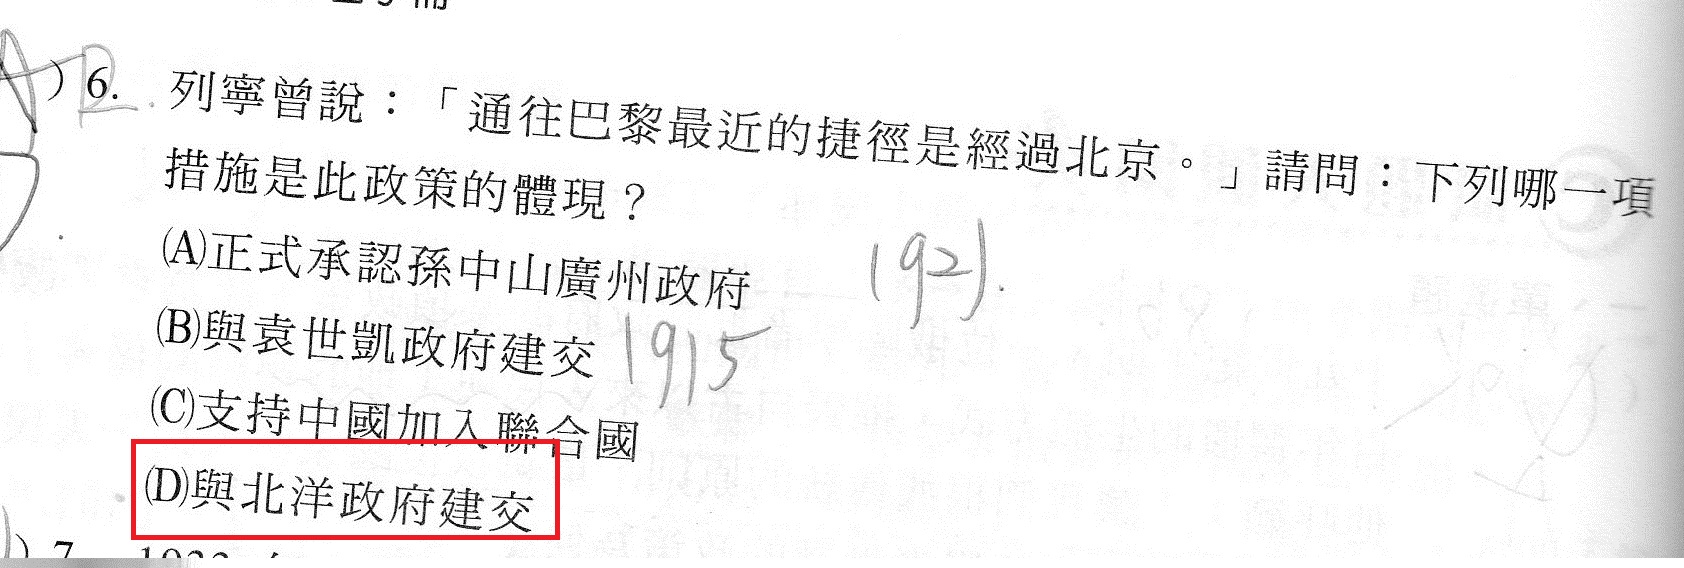 A ) 6. 列寧曾說：「通往巴黎最近的捷徑是經過北京。」請問：下列哪一項
措施是此政策的體現？
(A)正式承認孫中山廣州政府 1921.
(B)與袁世凱政府建交 1915
(C)支持中國加入聯合國
(D)與北洋政府建交
) 7.